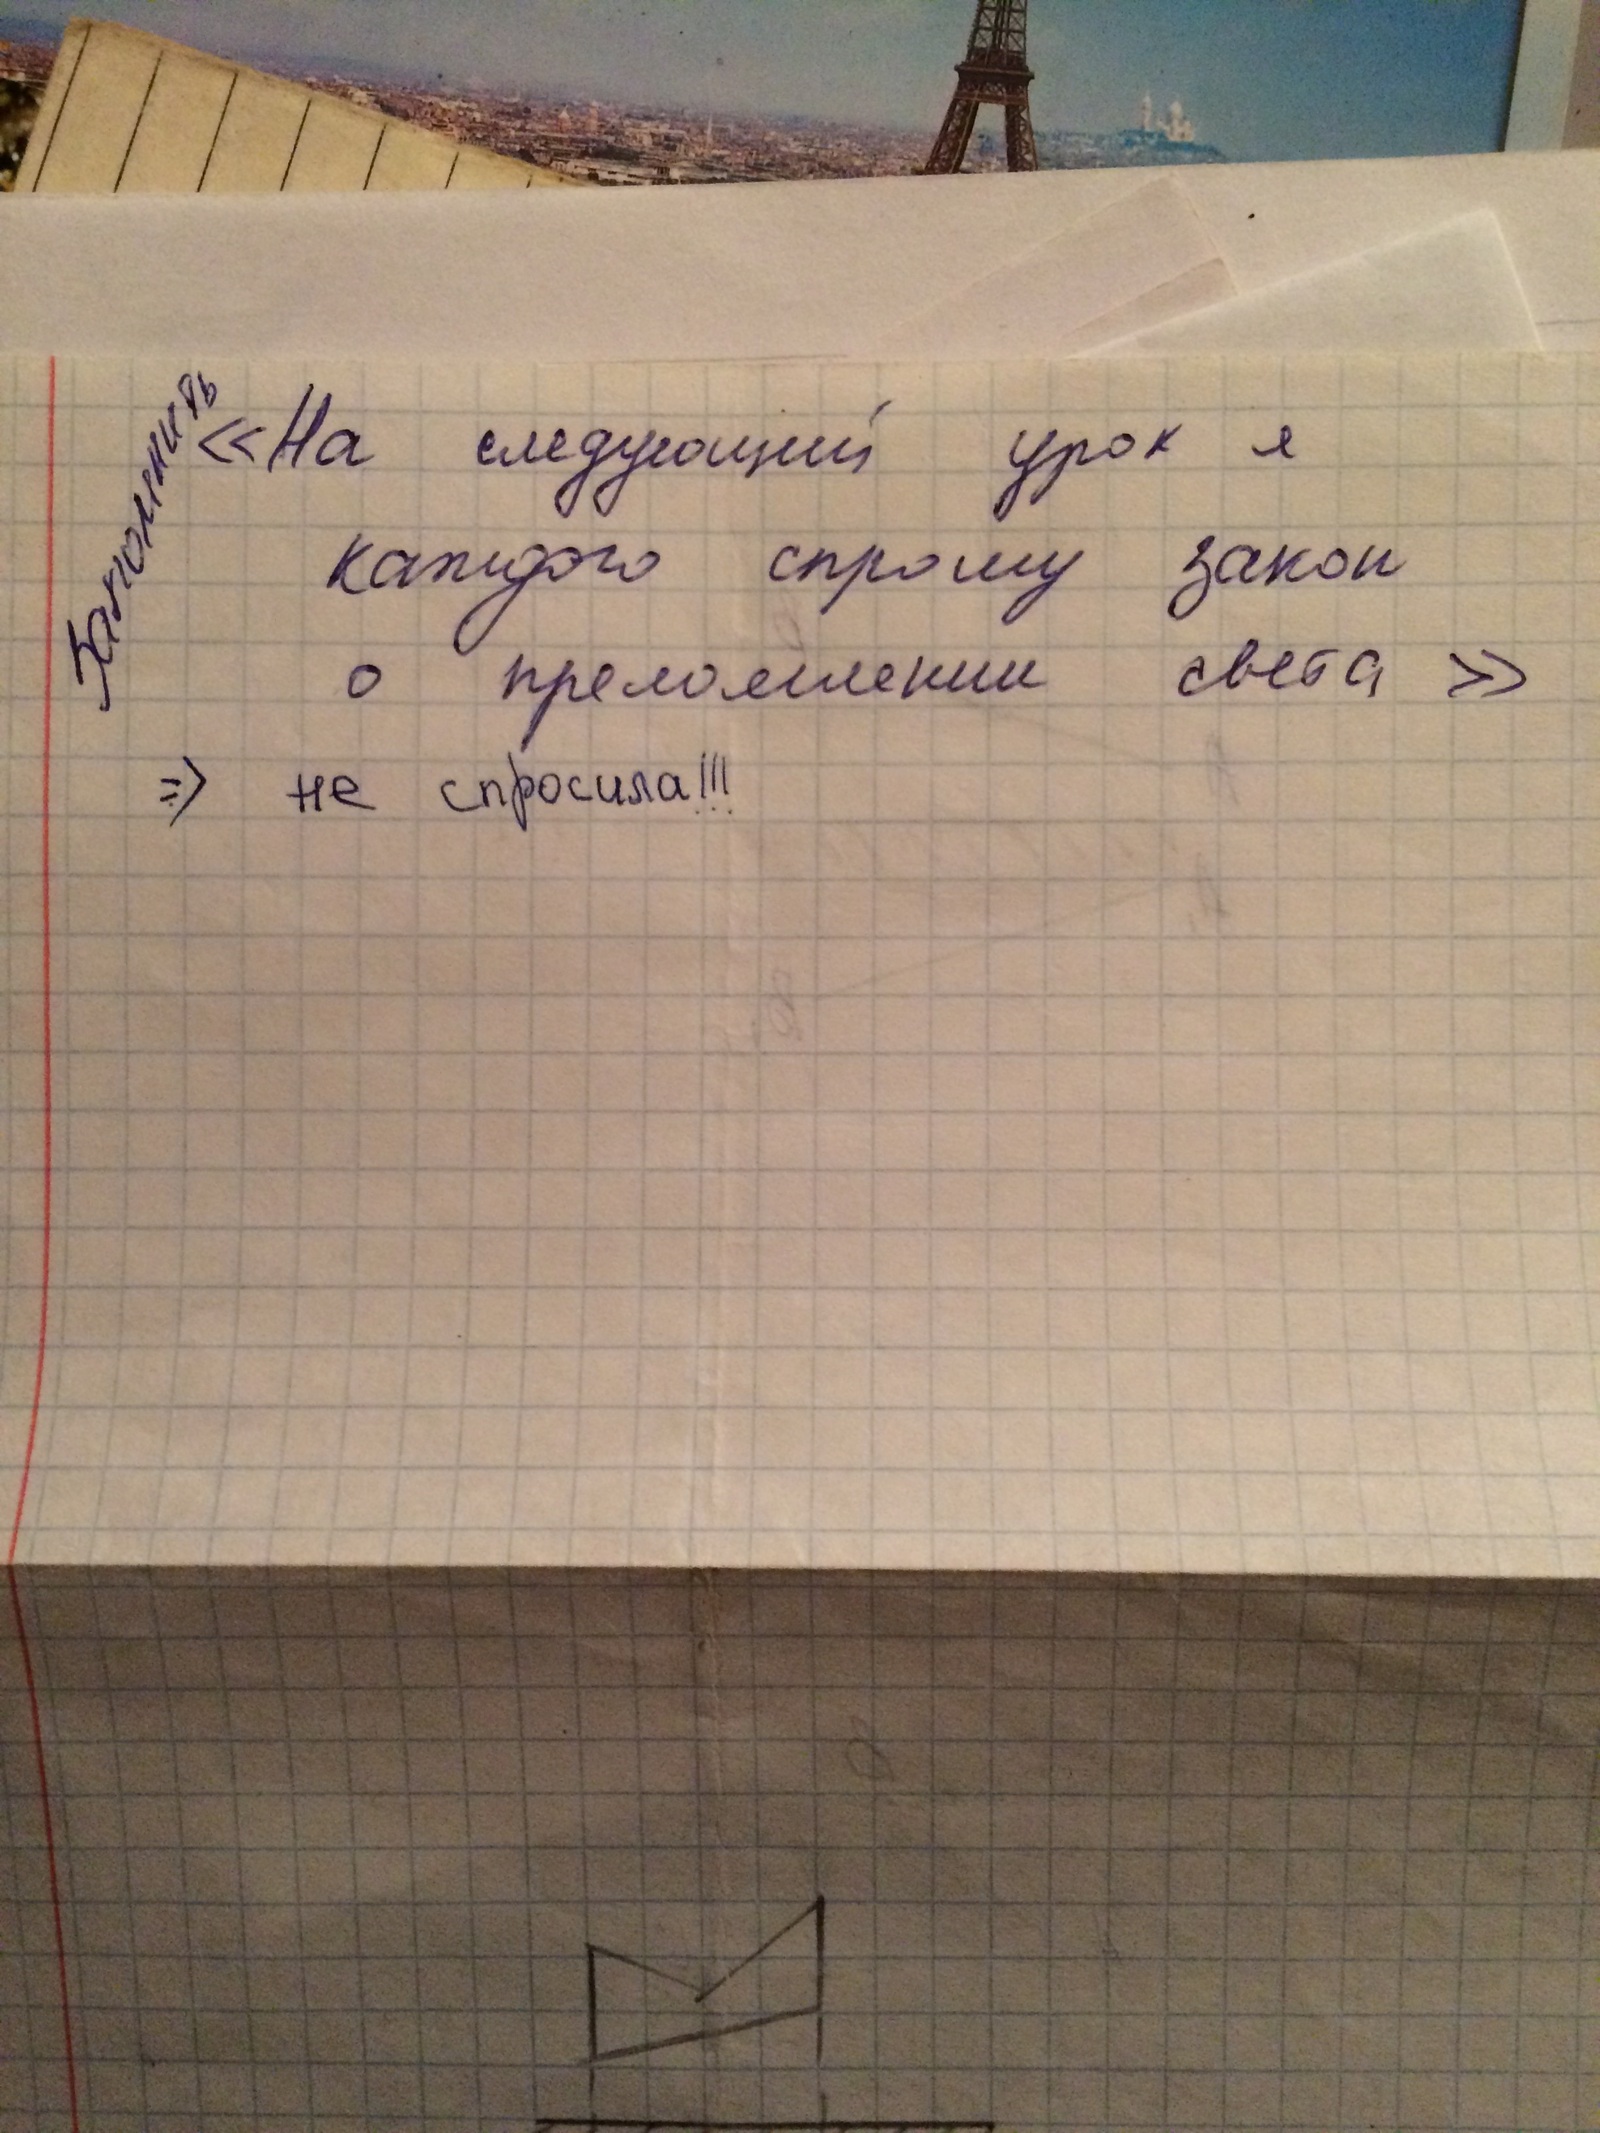 Запомнить
«На следующий урок я
каждого спрошу закон
о преломлении света»
=> не спросила!!!